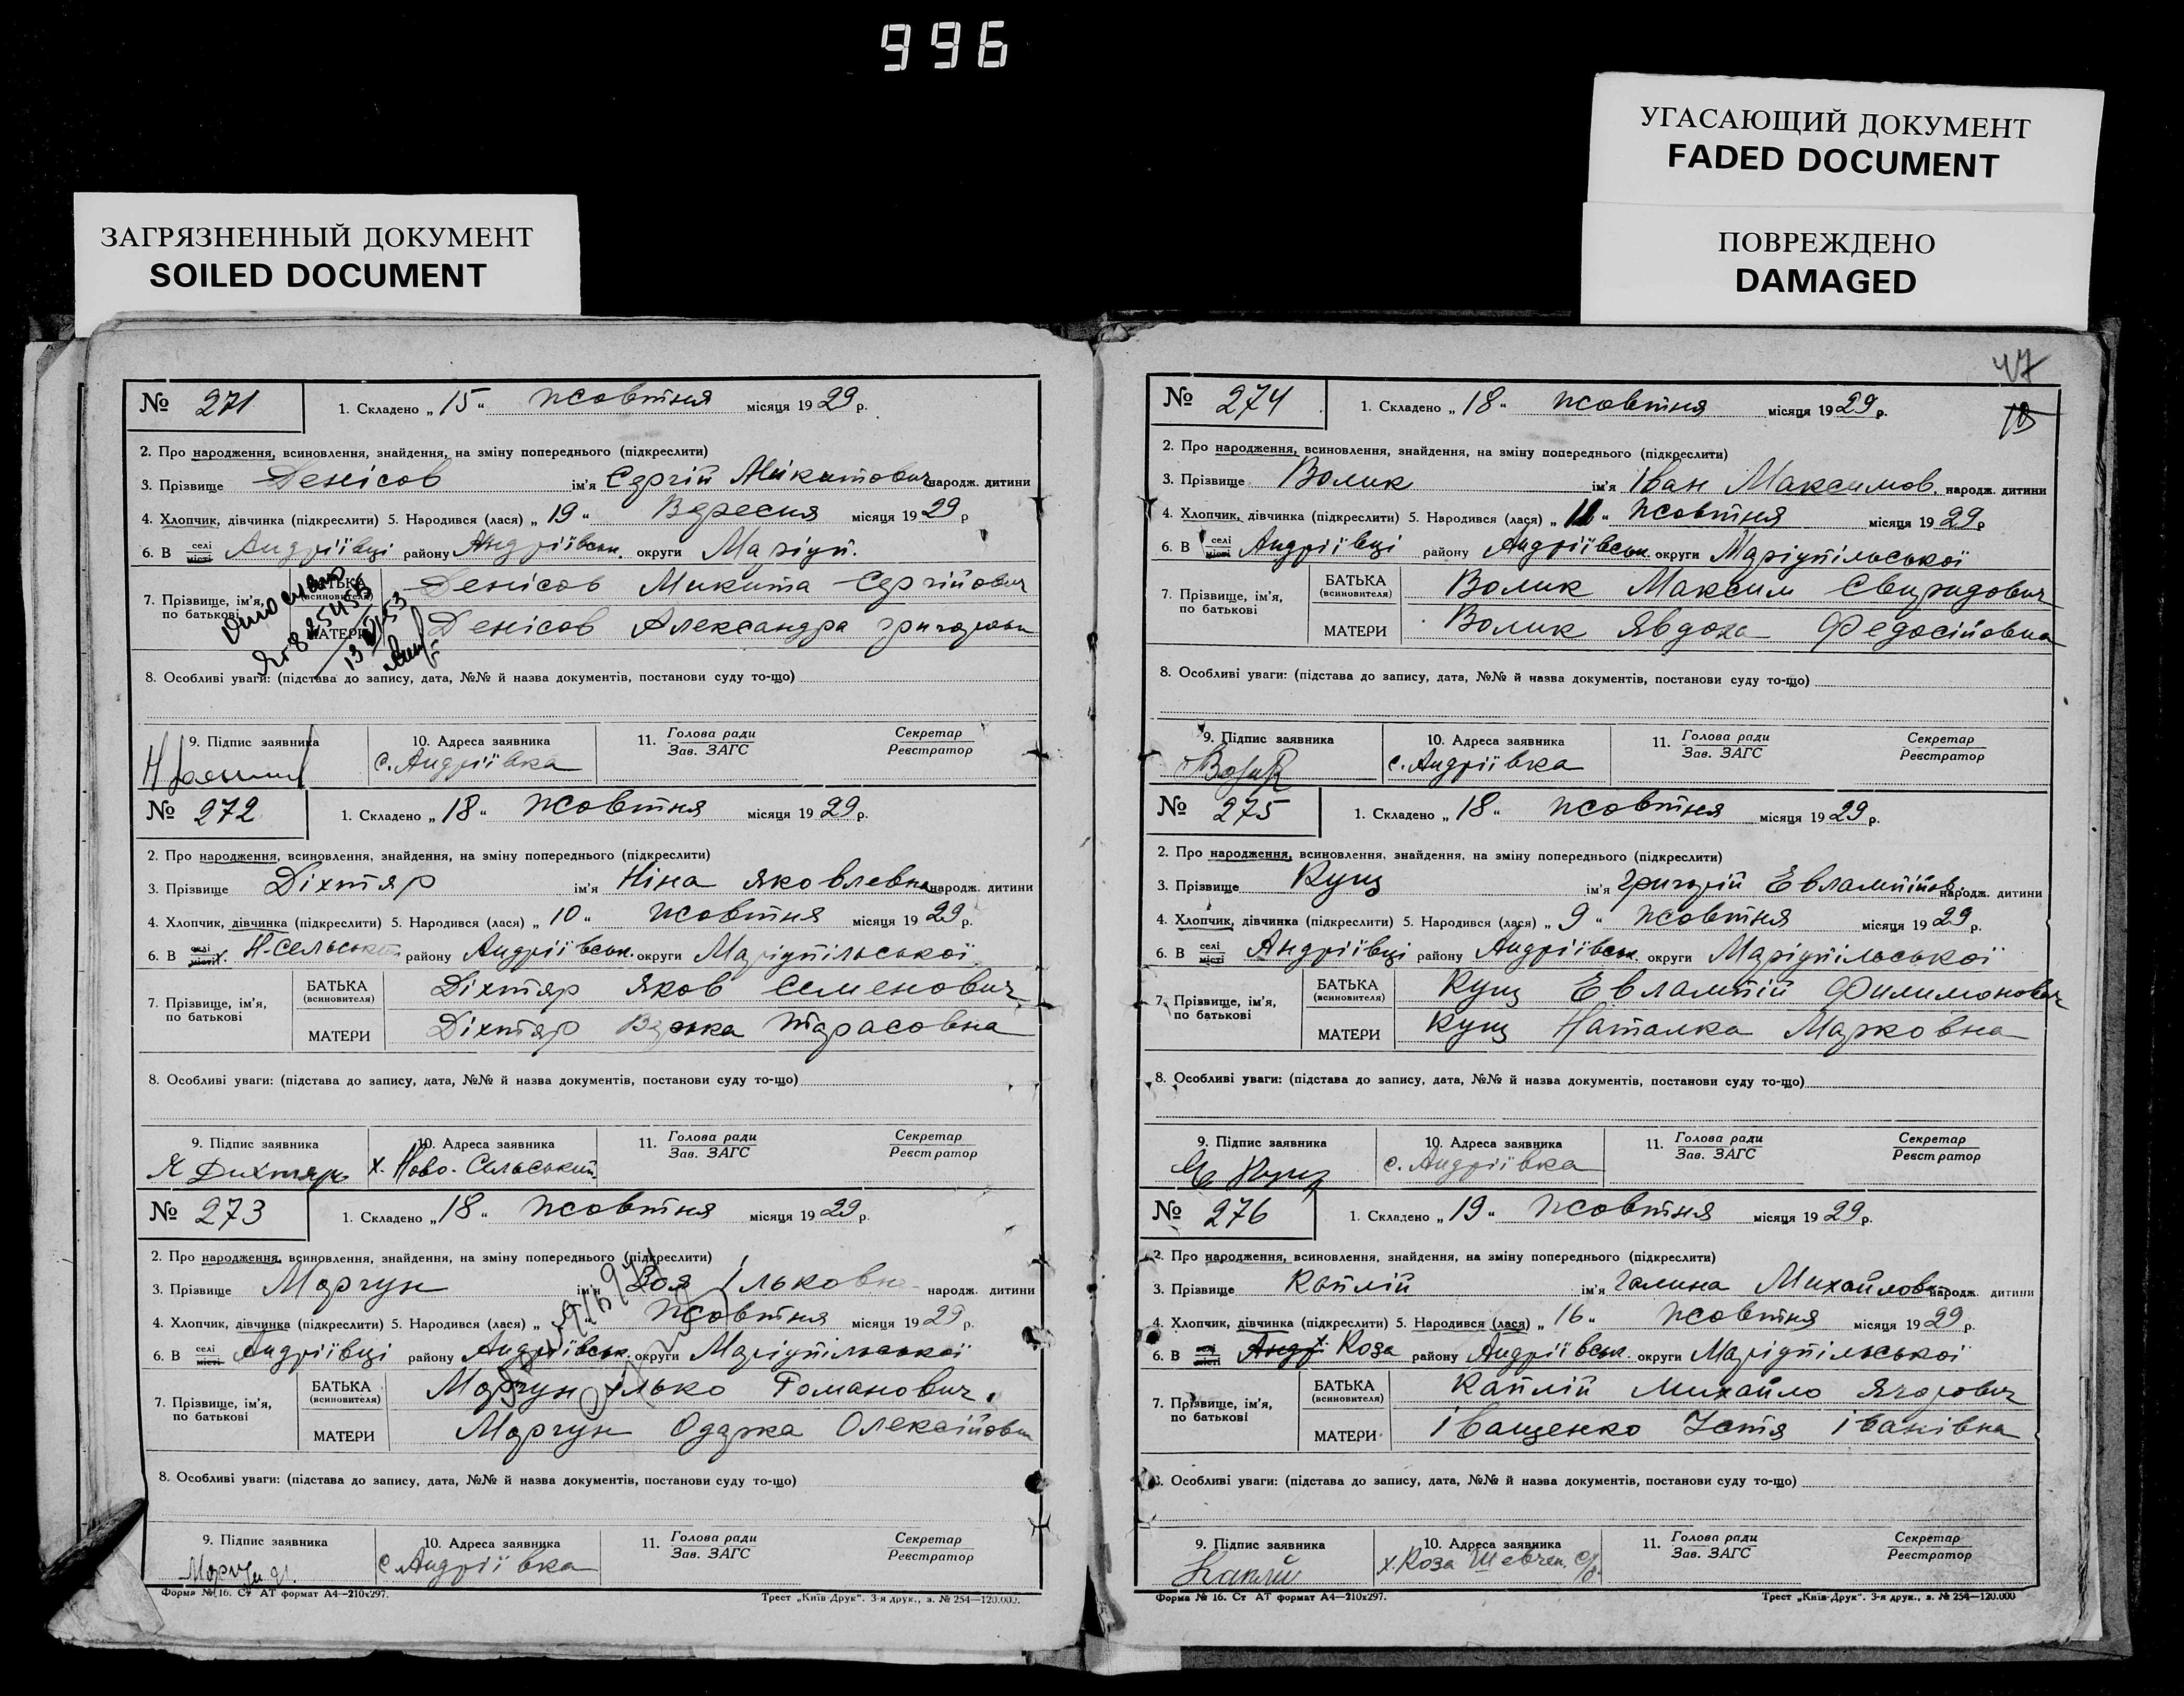 996
УГАСАЮЩИЙ ДОКУМЕНТ
FADED DOCUMENT
ПОВРЕЖДЕНО
DAMAGED
ЗАГРЯЗНЕННЫЙ ДОКУМЕНТ
SOILED DOCUMENT
№ 271
1. Складено „15“ жовтня місяця 1929 р.
2. Про народження, всиновлення, знайдення, на зміну попереднього (підкреслити)
3. Прізвище Денісов ім'я Сергій Микитович народж. дитини
4. Хлопчик, дівчинка (підкреслити) 5. Народився (лася) „19“ Вересня місяця 1929 р
6. В селі місті Андріївці району Андріївськ. округи Маріуп.
7. Прізвище, ім'я, по батькові
БАТЬКА (всиновителя) Денісов Микита Сергійович
МАТЕРИ Денісов Александра Григоровн
8. Особливі уваги: (підстава до запису, дата, №№ й назва документів, постанови суду то-що)
9. Підпис заявника
10. Адреса заявника с. Андріївка
11. Голова ради Зав. ЗАГС
Секретар Реєстратор
№ 272
1. Складено „18“ жовтня місяця 1929 р.
2. Про народження, всиновлення, знайдення, на зміну попереднього (підкреслити)
3. Прізвище Діхтяр ім'я Ніна Яковлевна народж. дитини
4. Хлопчик, дівчинка (підкреслити) 5. Народився (лася) „10“ жовтня місяця 1929 р.
6. В селі місті х. Н-Сельськ району Андріївськ. округи Маріупільської
7. Прізвище, ім'я, по батькові
БАТЬКА (всиновителя) Діхтяр Яков Семенович
МАТЕРИ Діхтяр Верька Тарасовна
8. Особливі уваги: (підстава до запису, дата, №№ й назва документів, постанови суду то-що)
9. Підпис заявника Я Дихтярь
10. Адреса заявника х. Ново-Сельський
11. Голова ради Зав. ЗАГС
Секретар Реєстратор
№ 273
1. Складено „18“ жовтня місяця 1929 р.
2. Про народження, всиновлення, знайдення, на зміну попереднього (підкреслити)
3. Прізвище Моргун ім'я Зоя Ільковн народж. дитини
4. Хлопчик, дівчинка (підкреслити) 5. Народився (лася) жовтня місяця 1929 р.
6. В селі місті Андріївці району Андріївськ. округи Маріупільської
7. Прізвище, ім'я, по батькові
БАТЬКА (всиновителя) Моргун Ілько Романович.
МАТЕРИ Моргун Одарка Олексійовн
8. Особливі уваги: (підстава до запису, дата, №№ й назва документів, постанови суду то-що)
9. Підпис заявника Моргун
10. Адреса заявника с Андріївка
11. Голова ради Зав. ЗАГС
Секретар Реєстратор
Форма № 16. Ст АТ формат А4—210х297.
Трест „Київ-Друк“. 3-я друк., з. № 254—120.000.
47
№ 274
1. Складено „18“ жовтня місяця 1929 р.
2. Про народження, всиновлення, знайдення, на зміну попереднього (підкреслити)
3. Прізвище Волик ім'я Іван Максимов. народж. дитини
4. Хлопчик, дівчинка (підкреслити) 5. Народився (лася) жовтня місяця 1929 р
6. В селі місті Андріївці району Андріївськ округи Маріупільської
7. Прізвище, ім'я, по батькові
БАТЬКА (всиновителя) Волик Максим Свиридович
МАТЕРИ Волик Явдоха Федосійовна
8. Особливі уваги: (підстава до запису, дата, №№ й назва документів, постанови суду то-що)
9. Підпис заявника Волик
10. Адреса заявника с. Андріївка
11. Голова ради Зав. ЗАГС
Секретар Реєстратор
№ 275
1. Складено „18“ жовтня місяця 1929 р.
2. Про народження, всиновлення, знайдення, на зміну попереднього (підкреслити)
3. Прізвище Кущ ім'я Григорій Евлампійов. народж. дитини
4. Хлопчик, дівчинка (підкреслити) 5. Народився (лася) „9“ жовтня місяця 1929 р.
6. В селі місті Андріївці району Андріївськ. округи Маріупільської
7. Прізвище, ім'я, по батькові
БАТЬКА (всиновителя) Кущ Евлампій Филимонович
МАТЕРИ Кущ Наталка Марковна
8. Особливі уваги: (підстава до запису, дата, №№ й назва документів, постанови суду то-що)
9. Підпис заявника
10. Адреса заявника с. Андріївка
11. Голова ради Зав. ЗАГС
Секретар Реєстратор
№ 276
1. Складено „19“ жовтня місяця 1929 р.
2. Про народження, всиновлення, знайдення, на зміну попереднього (підкреслити)
3. Прізвище Каплій ім'я Галина Михайловн народж. дитини
4. Хлопчик, дівчинка (підкреслити) 5. Народився (лася) „16“ жовтня місяця 1929 р.
6. В селі місті Андр х. Коза району Андріївськ. округи Маріупільської
7. Прізвище, ім'я, по батькові
БАТЬКА (всиновителя) Каплій Михайло Ягорович
МАТЕРИ Іващенко Устя Іванівна
8. Особливі уваги: (підстава до запису, дата, №№ й назва документів, постанови суду то-що)
9. Підпис заявника Каплий
10. Адреса заявника х. Коза Шевчен. с/р.
11. Голова ради Зав. ЗАГС
Секретар Реєстратор
Форма № 16. Ст АТ формат А4—210х297.
Трест „Київ-Друк“. 3-я друк., з. № 254—120.000